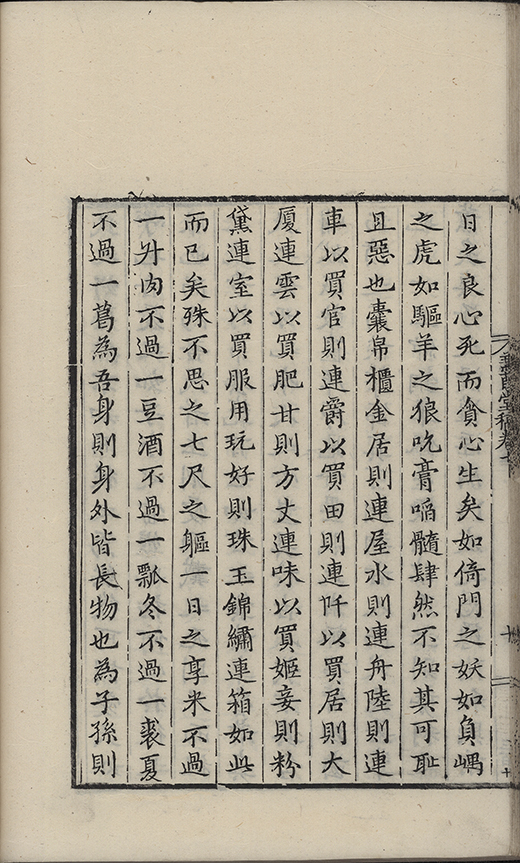 日之良心死而貪心生矣如倚門之妖如負嵎
之虎如驅羊之狼吮膏嘬髓肆然不知其可恥
且惡也囊帛櫃金居則連屋水則連舟陸則連
車以買官則連爵以買田則連阡以買居則大
厦連雲以買肥甘則方丈連味以買姬妾則粉
黛連室以買服用玩好則珠玉錦繡連箱如此
而已矣殊不思之七尺之軀一日之享米不過
一升肉不過一豆酒不過一瓢冬不過一裘夏
不過一葛為吾身則身外皆長物也為子孫則